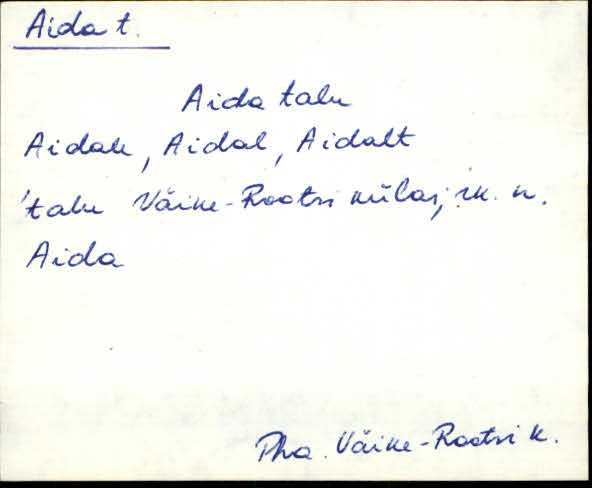 Aida t.
Aida talu
Aidale, Aidal, Aidalt
'talu Väike-Rootsi külas; rk. n.
Aida
Pha. Väike-Rootsi k.